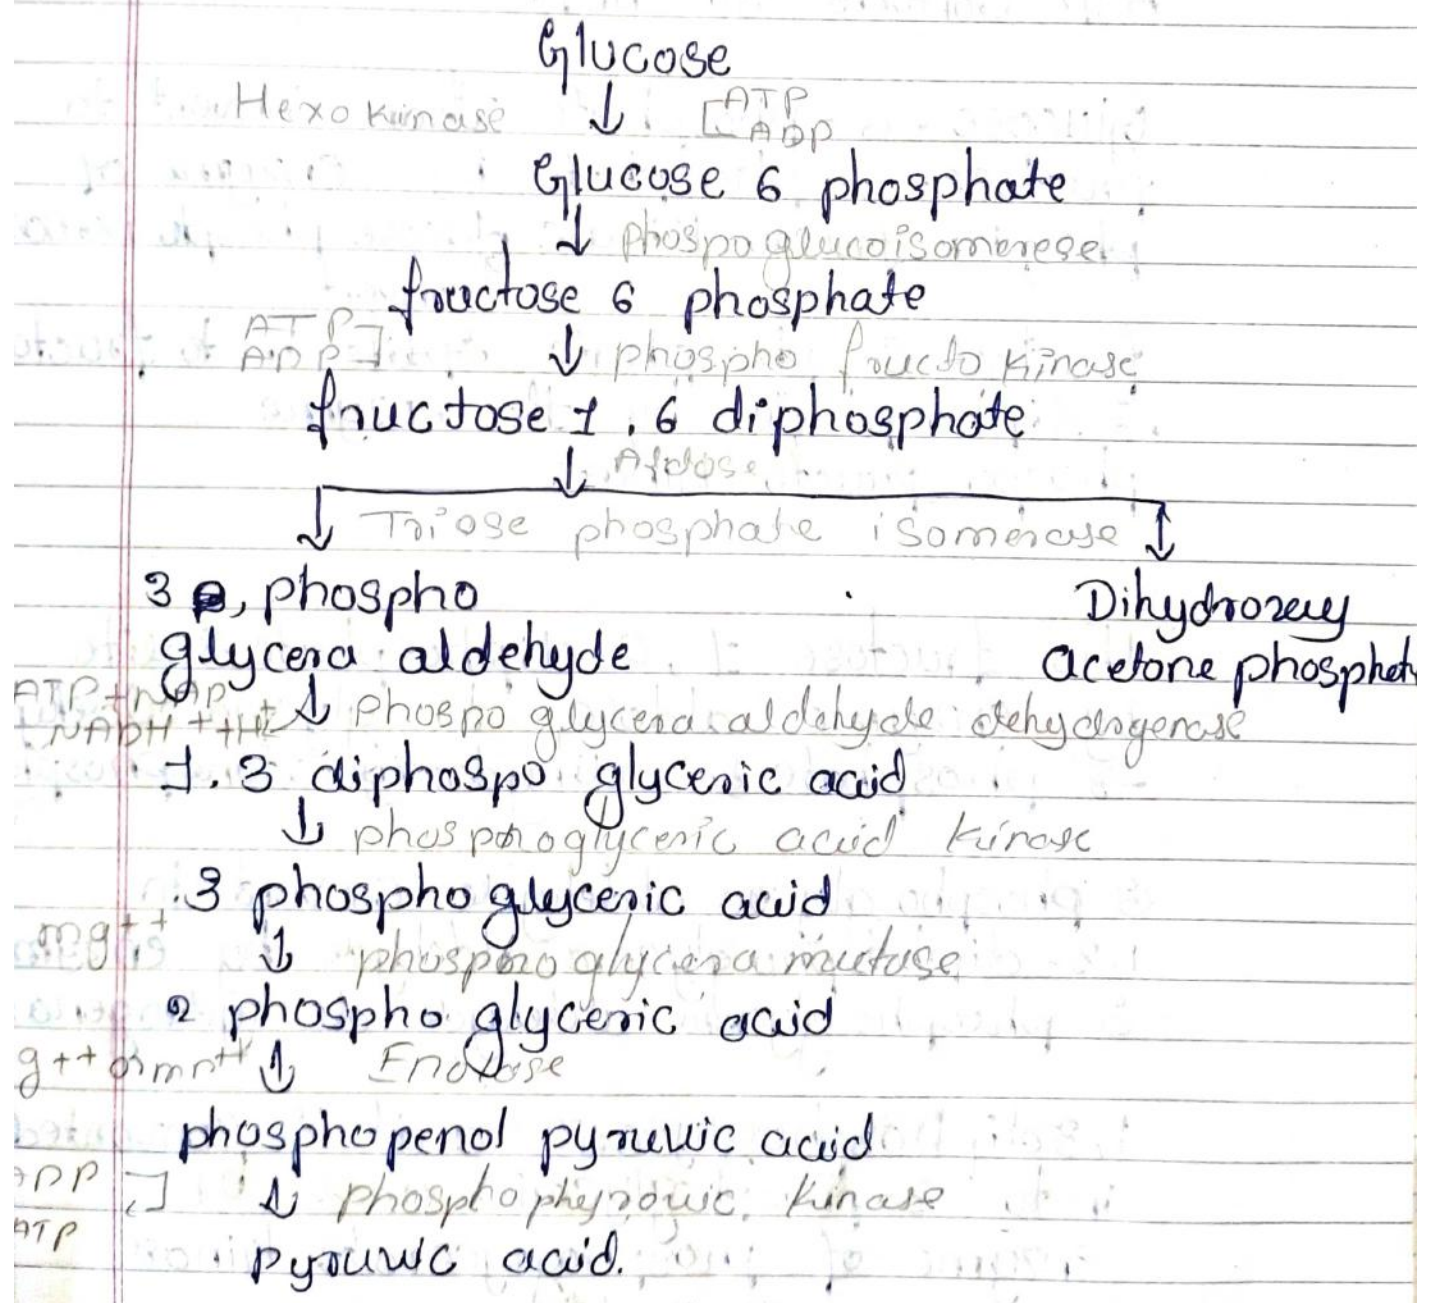 Glucose
Hexo kinase ↓ [ATP
ADP
Glucose 6 phosphate
↓ phospo glucoisomerese
fructose 6 phosphate
ATP
ADP] ↓ phospho fructo kinase
fructose 1.6 diphosphate
↓
Triose phosphate isomerase
3 , phospho
glycera aldehyde
Dihydroxy
acetone phosphet
ATP+NAP
+ NADH + +H+ ↓ Phospo glycera aldehyde dehydrogenase
1.3 diphospo glyceric acid
↓ phosphoglyceric acid kinase
3 phospho glyceric acid
mg++ ↓ phosphoglycera mutase
2 phospho glyceric acid
g++ or mn++ ↓ Enolase
phosphopenol pyruvic acid
ADP] ↓ phosphophyrouic kinase
ATP
pyruvic acid.